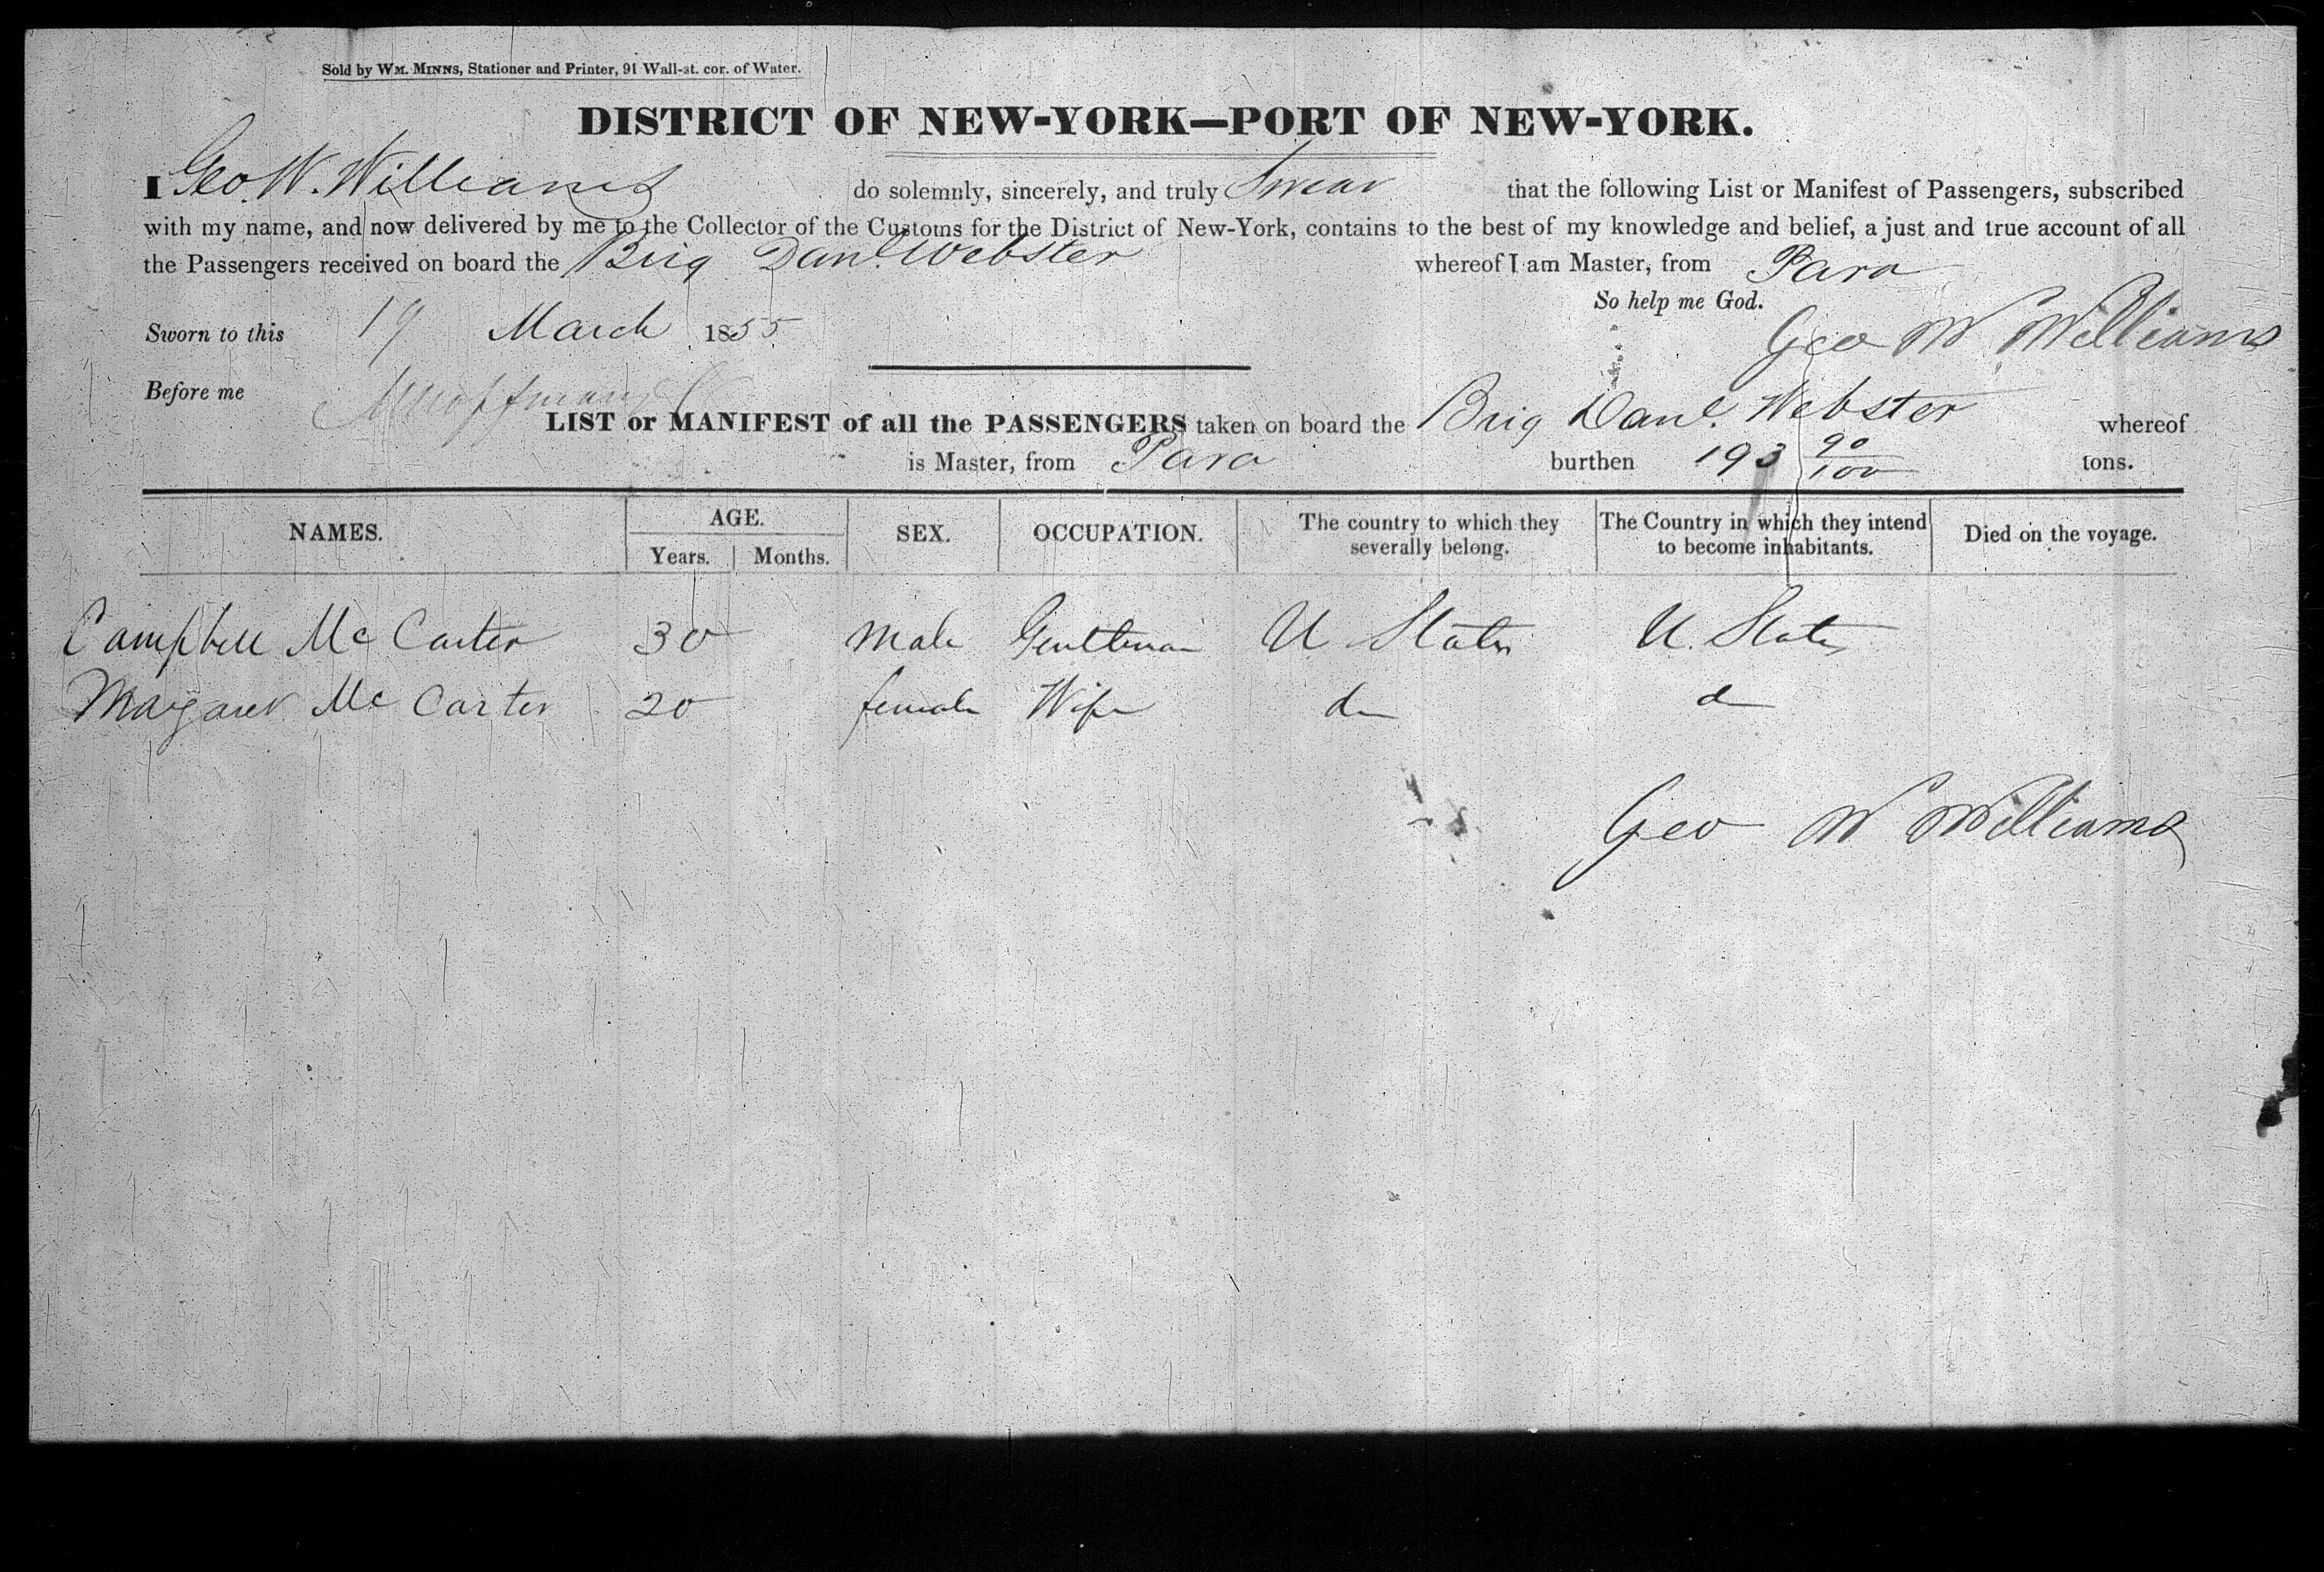 Sold by WM. MINNS, Stationer and Printer, 91 Wall-st. cor. of Water.
DISTRICT OF NEW-YORK—PORT OF NEW-YORK.
I Geo. W. Williams do solemnly, sincerely, and truly Swear that the following List or Manifest of Passengers, subscribed
with my name, and now delivered by me to the Collector of the Customs for the District of New-York, contains to the best of my knowledge and belief, a just and true account of all
the Passengers received on board the Brig Danl. Webster whereof I am Master, from Para
So help me God.
Sworn to this 19 March 1855
Geo W Williams
Before me
LIST or MANIFEST of all the PASSENGERS taken on board the Brig Danl. Webster whereof
is Master, from Para burthen 193 90/100 tons.
NAMES. AGE. Years. Months. SEX. OCCUPATION. The country to which they severally belong. The Country in which they intend to become inhabitants. Died on the voyage.
Campbell Mc Carter 30 Male Gentleman U States U. States
Margaret Mc Carter 20 female Wife do do
Geo W Williams